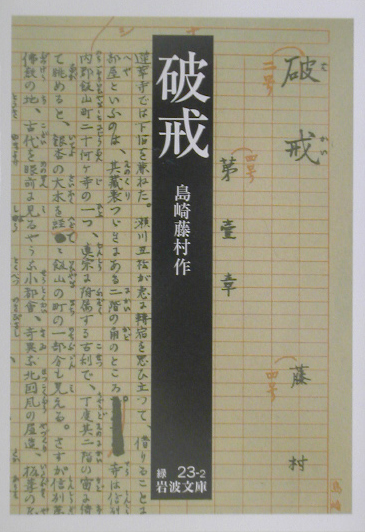 破戒
島崎藤村作
緑 23-2
岩波文庫
破戒
はかい
二号
第壹章
四号
藤村
四号
島崎
蓮華寺では下宿を兼ねた。瀬川丑松が急に轉宿を思ひ立つて、借りることに
部屋といふのは、其藏裏つゞきにある二階の角のところ。寺は信州
内郡飯山町二十何ヶ寺の一つ、真宗に附属する古刹で、丁度其二階の窓に倚
て眺めると、銀杏の大木を經てゝ飯山の町の一部分も見える。さすが信州第
佛教の地、古代を眼前に見るやうな小都會、奇異な北国風の屋造、板葺の